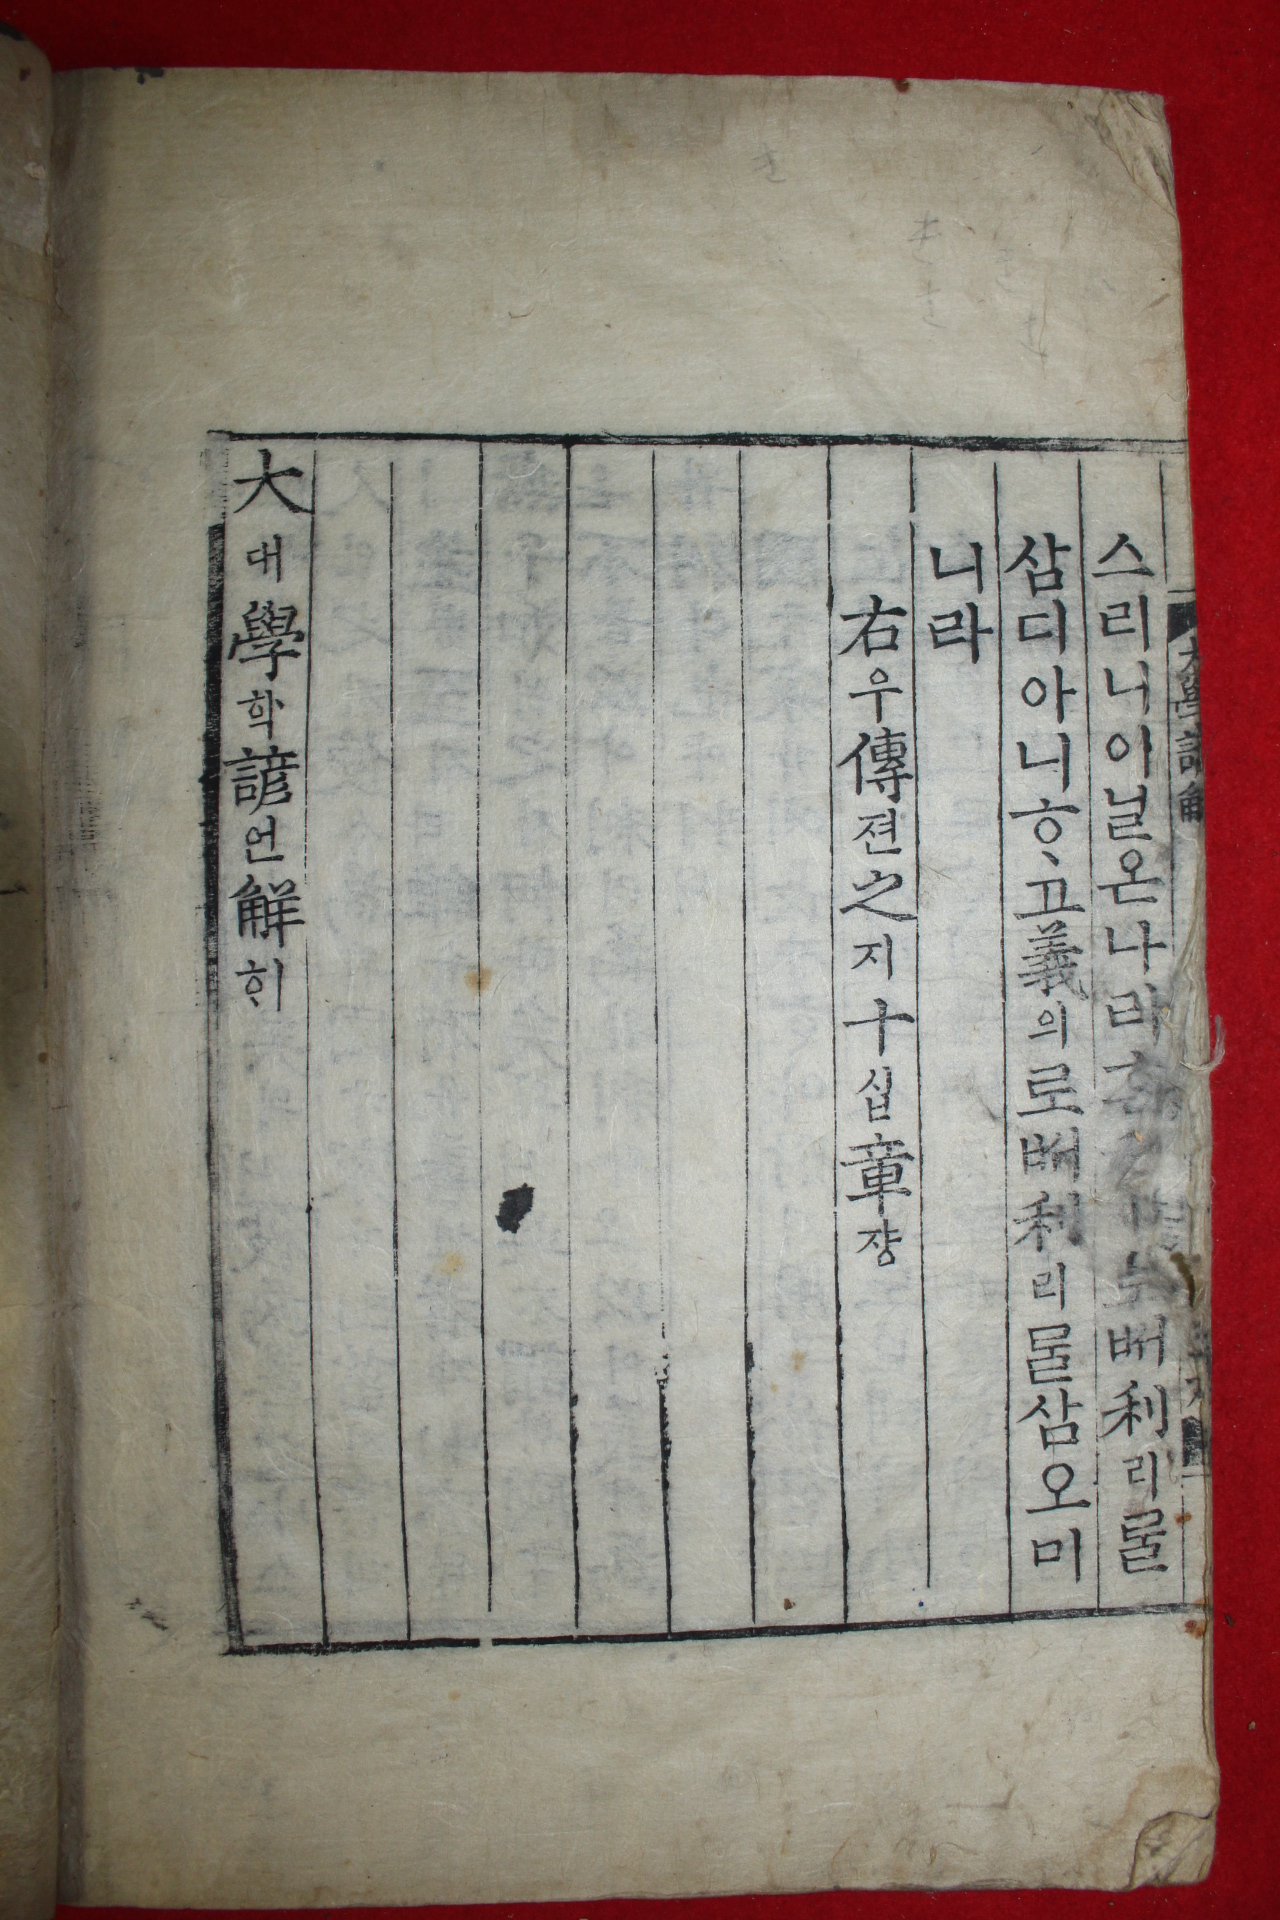 大學諺解
스리니이닐온나라 로ᄡᅥ利리를
삼디아니ᄒᆞ고義의로ᄡᅥ利리를삼오미
니라
右우傳젼之지十십章쟝
大대學학諺언解ᄒᆡ